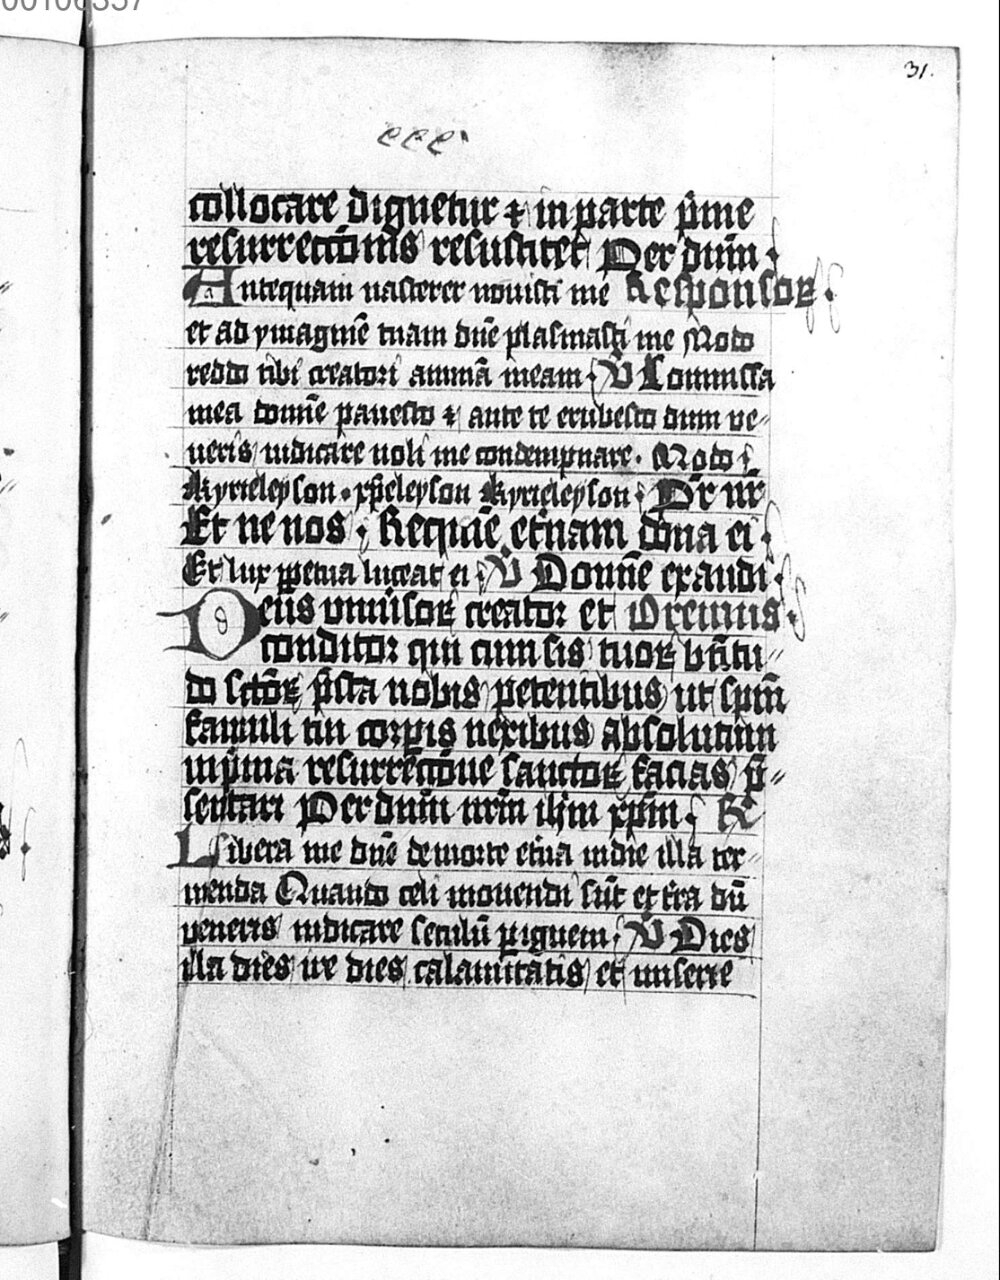 00106357
31.
collocare dignetur ⁊ in parte p̄me
resurrectōnis resuscitet Per dn̄m.
Antequam nascerer novisti me Responsoꝝ.
et ad ymaginē tuam dn̄e plasmasti me Modo
reddo tibi creatori animā meam. V̄ Comissa
mea domīe pavesco ⁊ ante te erubesco dum ve⸗
neris iudicare noli me condempnare. Modo
Kyrieleyson. xp̄eleyson Kyrieleyson. Pr̄ nr̄
Et ne nos. Requiē et̄nam dona ei.
Et lux ꝑpetua luceat ei. V̄ Domīe exaudi.
Deus om̄iū creator et Oremus.
conditor qui cum sis tuoꝝ bt̄itu⸗
do sc̄toꝝ p̄sta nobis petentibus ut sp̄m
famuli tui corꝑis nexibus absolutum
in p̄ma resurrectōne sanctoꝝ facias p̄⸗
sentari Per dn̄m nr̄m ih̄m xp̄m. R
Libera me dn̄e de morte et̄na in die illa tre⸗
menda Quando celi movendi sūt et tr̄a dū
veneris iudicare seculū ꝑ ignem. V̄ Dies
illa dies ire dies calamitatis et miserie